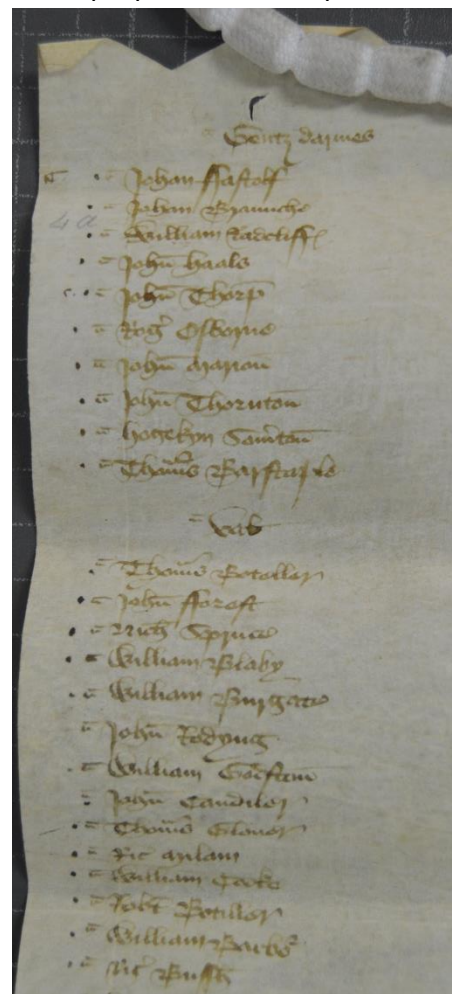 Gentz darmes
Johan ffastolf
Johan Braunche
4a
William Radcliff
Joħn haals
Joħn Thorp
Rog' Osborne
Joħn Marion
Joħn Thornton
hogekyn Som'ton
Thom's Barstaple
Val
Thom's Botoller
Joħn fforest
Nich Spruce
William Blaby
William Burgate
Joħn Redyng
William
Joħn Caundiler
Thom's Glover
Ric Milam
William Cooke
Rob't Botiller
William Barb'
Ric' Bussh